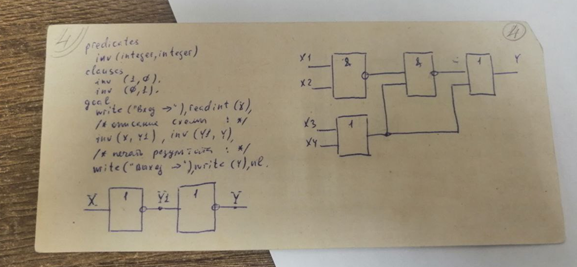 4
11
predicates
inv (integer, integer)
clauses
inv (1,0).
inv (0,1).
goal
write ("Вход →"), readint (X),
/* описание схемы : */
inv (X, Y1), inv (Y1, Y),
/* печать результата : */
write ("Выход →"), write (Y), nl.
X 1 Y1 1 Y
X1 & & 1 Y
X2
X3 1
X4